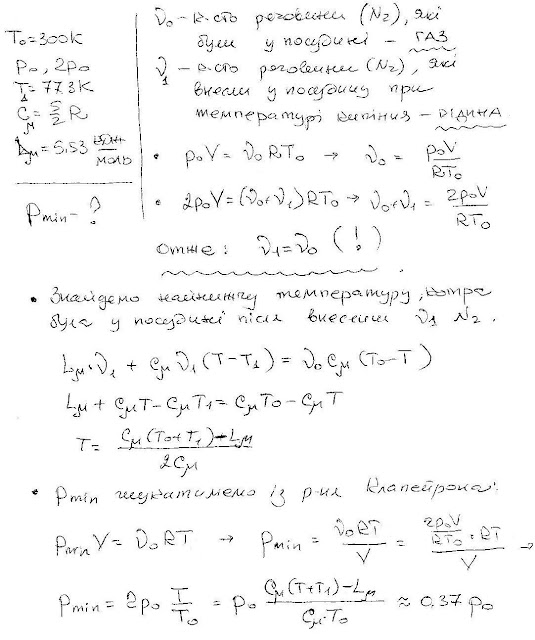 T₀=300K
p₀, 2p₀
T₁=77.3K
C_μ=5/2 R
L_μ=5,53 кДж/моль
Pmin-?
ν₀ - к-сть речовини (N₂), які
були у посудині - ГАЗ
ν₁ - к-сть речовини (N₂), які
внесли у посудину при
температурі кипіння - РІДИНА
• p₀V = ν₀RT₀ → ν₀ = p₀V/RT₀
• 2p₀V=(ν₀+ν₁)RT₀ → ν₀+ν₁ = 2p₀V/RT₀
отже: ν₁=ν₀ (!)
• Знайдемо найнижчу температуру, котра
була у посудині після внесення ν₁ N₂.
L_μ·ν₁ + C_μ ν₁ (T-T₁) = ν₀ C_μ (T₀-T)
L_μ + C_μT - C_μT₁ = C_μT₀ - C_μT
T = (C_μ(T₀+T₁)-L_μ)/2C_μ
• Pmin шукатимемо із р-ня Клапейрона:
Pmin V = ν₀RT → Pmin = ν₀RT/V = (2p₀V/RT₀ · RT)/V →
Pmin = 2p₀ T/T₀ = p₀ (C_μ(T+T₁)-L_μ)/(C_μ·T₀) ≈ 0,37 p₀